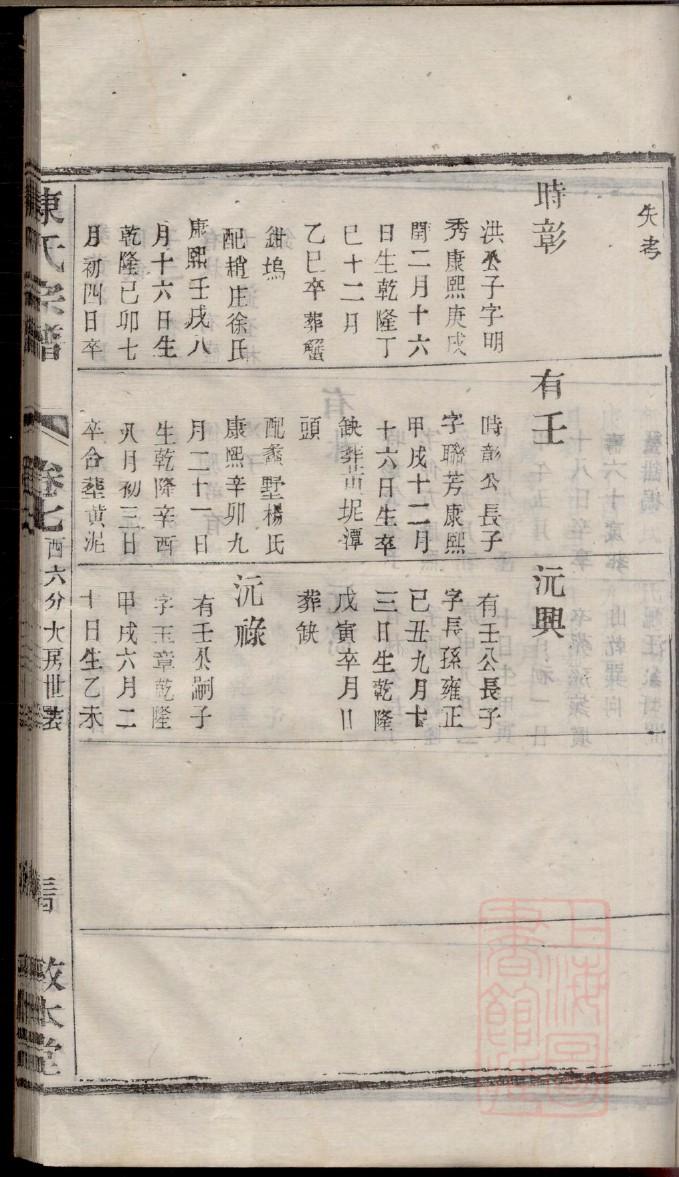 失考
時彰
洪公子字明
秀康熙庚戌
閏二月十六
日生乾隆丁
巳十二月
乙巳卒葬蟹
鉗塢
配梢庄徐氏
康熙壬戌八
月十六日生
乾隆己卯七
月初四日卒
有壬
時彰公長子
字聯芳康熙
甲戌十二月
十六日生卒
缺葬苗坭潭
頭
配蠡墅楊氏
康熙辛卯九
月二十一日
生乾隆辛酉
八月初三日
卒合葬黄泥
沅興
有壬公長子
字長孫雍正
己丑九月十
三日生乾隆
戊寅卒月日
葬缺
沅祿
有壬公嗣子
字玉章乾隆
甲戌六月二
十日生乙未
陳氏宗譜
卷七
酉六分大房世表
敦本堂
上海圖書館藏